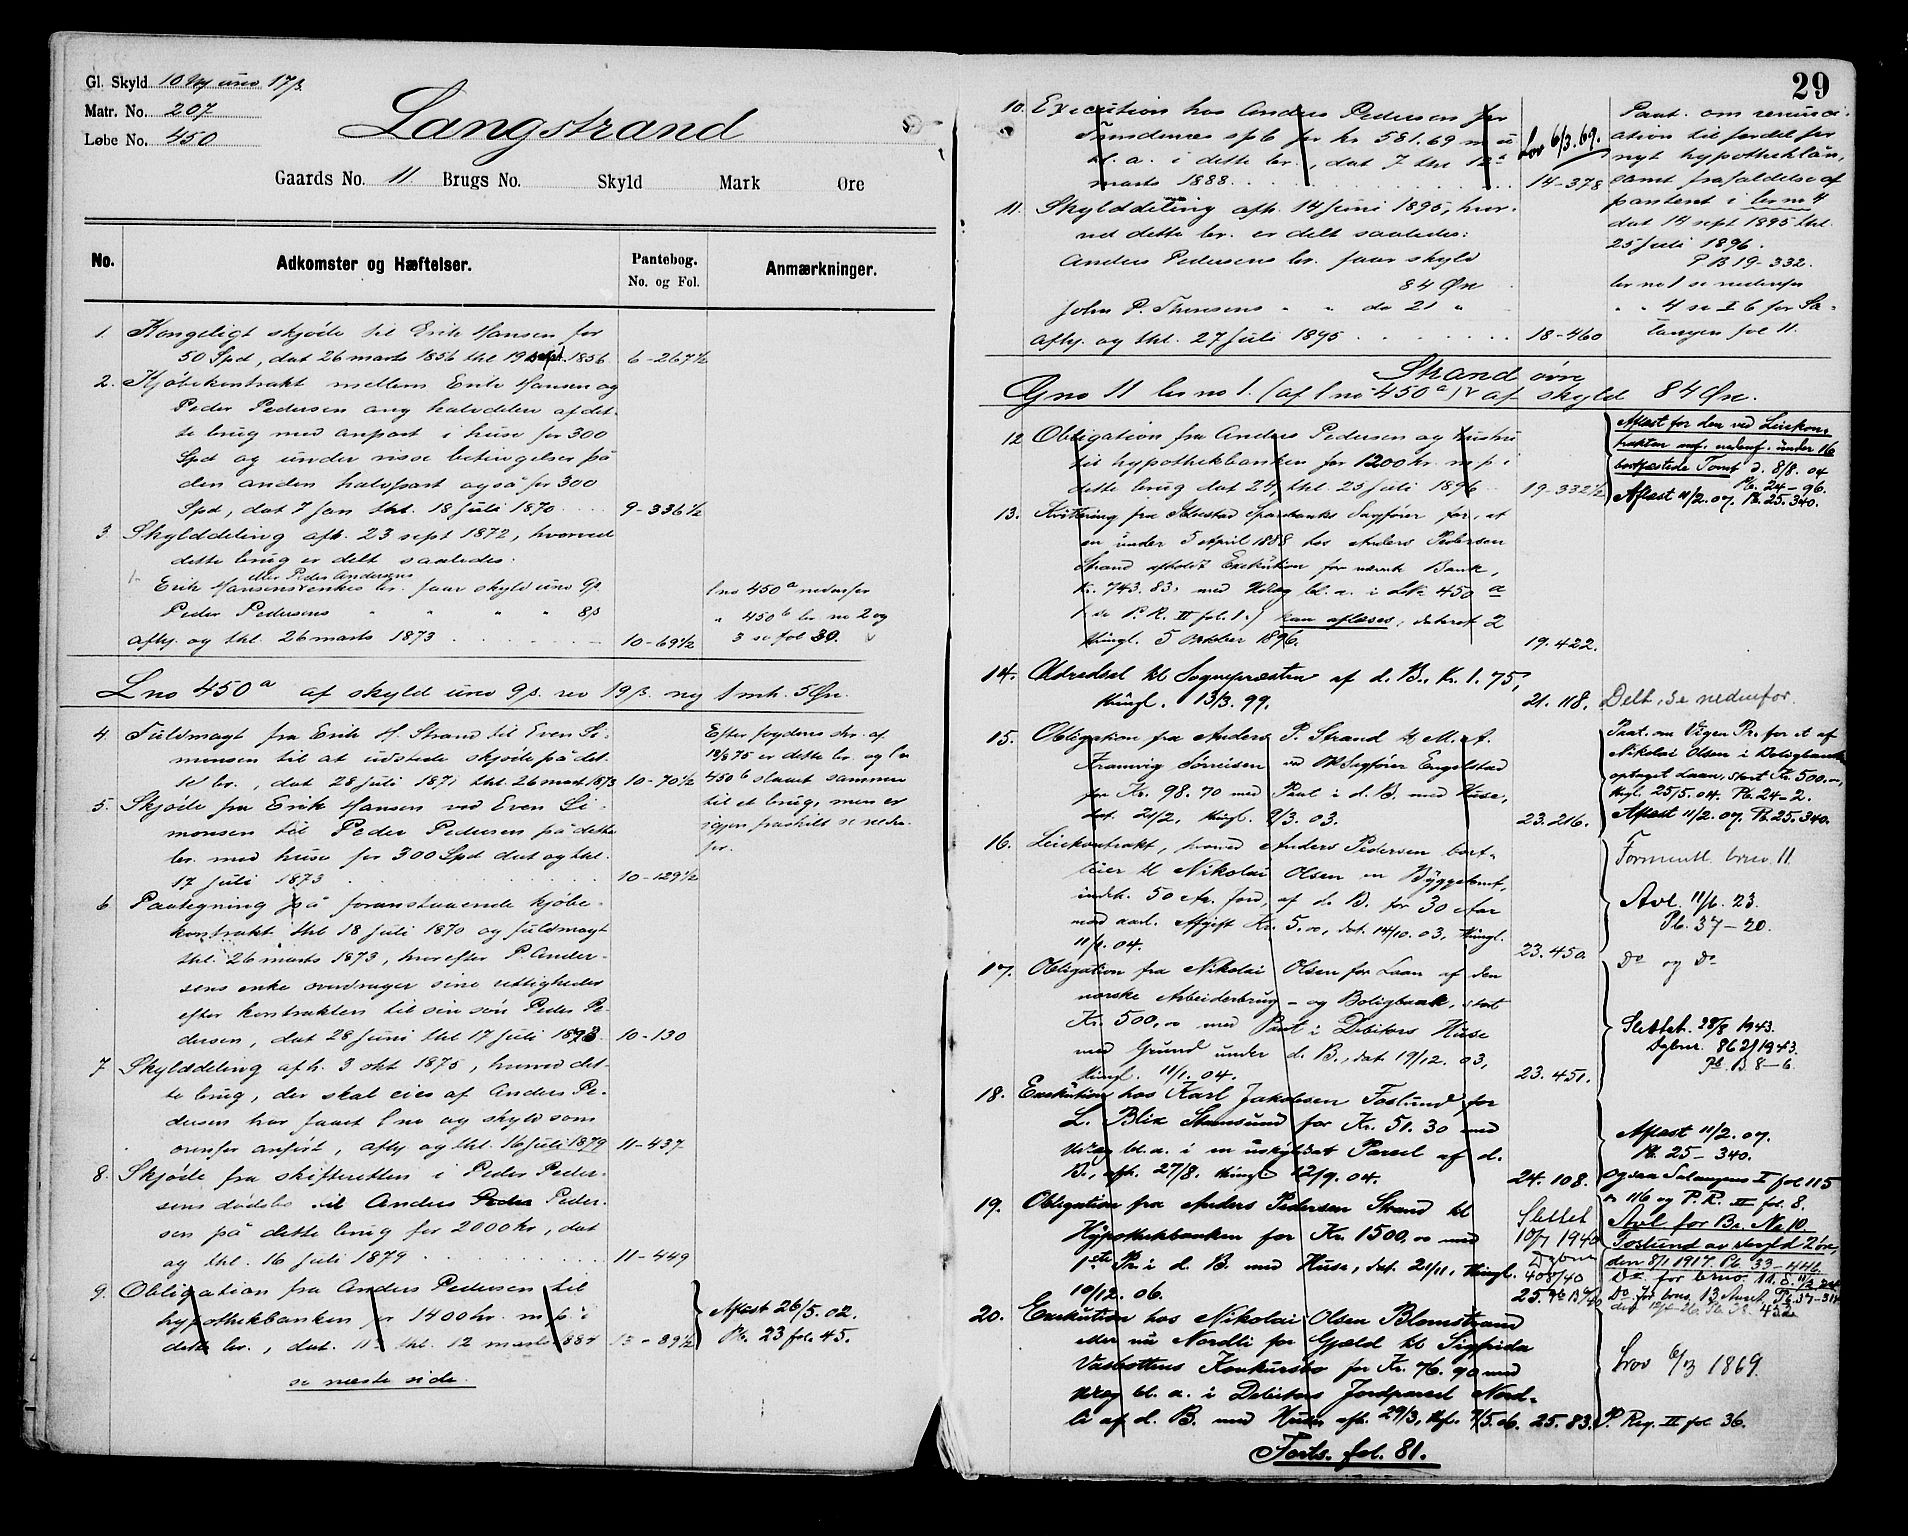 Gl. Skyld 10 M uno 17 β
Matr. No. 207
Løbe No. 450
Langstrand
Gaards No. 11 Brugs No. Skyld Mark Øre
No. Adkomster og Hæftelser. Pantebog. No. og Fol. Anmærkninger.
1. Kongeligt skjøde til Erik Hansen for
50 Spd, dat 26 marts 1856 thl 19 sept. 1856 6-267½
2. Kjøbekontrakt mellem Erik Hansen og
Peder Pedersen ang halvdelen af det-
te brug med anpart i huse for 300
Spd og under visse betingelser på
den anden halvpart også for 300
Spd, dat 7 Jan thl. 18 Juli 1870 9-336½
3. Skylddeling afh. 23 sept 1872, hvorved
dette brug er delt saaledes:
eller Peder Andersens
Erik Hansens enkes br. faar skyld uno 9β
Peder Pedersens " " " " 8β
afhj. og thl. 26 marts 1873 10-69½
lno 450a nedenfor
" 450b br no 2 og
3 se fol 30.
Lno 450a af skyld uno 9β. rev 19β. ny 1 mk. 5 Øre.
4. Fuldmagt fra Erik H. Strand til Even Si-
monsen til at udstede skjøde på det-
te br., dat 28 Juli 1871 thl. 26 mart 1873 10-70½
Efter fogdens skr. af
18/8 75 er dette br. og lno
450b slaaet sammen
til et brug, men er
igjen fraskilt se neden-
for.
5. Skjøde fra Erik Hansen ved Even Si-
monsen til Peder Pedersen på dette
br. med huse for 300 Spd dat og thl.
17 Juli 1873 10-129½
6. Paategning på foranstaaende kjøbe-
kontrakt thl 18 Juli 1870 og fuldmagt
thl. 26 marts 1873, hvorefter P. Ander-
sens enke overdrager sine rettigheder
efter kontrakten til sin søn Peder Pe-
dersen, dat 28 Juni thl 17 Juli 1873 10-130
7. Skylddeling afh. 3 okt 1875, hvorved det-
te brug, der skal eies af Anders Pe-
dersen har faaet lno og skyld som
ovenfor anført, afhj og thl. 16 Juli 1879 11-437
8. Skjøde fra skifteretten i Peder Peder-
sens dødsbo til Anders Peder Peder-
sen på dette brug for 2000 kr, dat
og thl. 16 Juli 1879 11-449
9. Obligation fra Anders Pedersen til
hypothekbanken for 1400 kr. m p i
dette br., dat. 11 thl. 12 marts 1884 13-89½
Aflæst 26/5. 02.
Pb. 23 fol. 45.
se næste side.
29
10. Execution hos Anders Pedersen for
Tømdernes spb for kr 581.69 m u
bl. a. i dette br., dat 7 thl 12te
marts 1888. 14-378
Lov 6/3. 69.
Paat. om renunci-
ation til fordel for
nyt hypotheklån,
samt frafaldelse af
panteret i br no 4
dat 14 sept 1895 thl.
25 Juli 1896.
P B 19-332.
br no 1 se nedenfor
" " 4 se I 6 for Sa-
langen fol 11.
11. Skylddeling afh. 14 Juni 1895, hvor-
ved dette br. er delt saaledes:
Anders Pedersens br. faar skyld
84 Øre
John P. Thuresens " " do 21 "
afhj. og thl. 27 Juli 1895 18-460
Strand øvre
Gno 11 br no 1. (af lno 450a) af skyld 84 Øre.
12 Obligation fra Anders Pedersen og hustru
til hypothekbanken for 1200 kr. m p i
dette brug dat 24 thl. 25 Juli 1896 19-332½
Aflæst for den ved Leiekon-
trakten nedenf. under 16
bortfæstede Tomt d. 8/8. 04
Pb. 24-96.
Aflæst 11/2. 07. Pb. 25. 340.
13. Kvittering fra Ibbestad Sparebanks Sagfører for, at
en under 5 april 1888 hos Anders Pedersen
Strand afholdt Exekution for nævnte Bank,
Kr. 743.83, med Udlæg bl. a. i LNo 450 a
(se P. R. II fol. 1.) kan aflæses, dateret 2
thingl. 5 Oktober 1896. 19.422.
14. Udredsel til Sognepræsten af d. B. Kr. 1.75,
thingl. 13/3. 99. 21. 118. Delt, se nedenfor.
15. Obligation fra Anders P. Strand til M. A.
Framvig Sørreisen ved O.R.Sagfører Engelstad
for Kr. 98.70 med Pant i d. B. med Huse,
dat. 21/2, thingl. 9/3. 03. 23.216.
Paat. om Vigen Pr. for et af
Nikolai Olsen i Boligbanken
optaget Laan, stort Kr. 500,-,
thgl. 25/5. 04. Pb. 24-2.
Aflæst 11/2. 07. Pb. 25. 340.
16. Leiekontrakt, hvorved Anders Pedersen bort-
leier til Nikolai Olsen en Byggetomt,
indeh. 50 Ar. jord, af d. B. for 30 Aar
mod aarl. Afgift Kr. 5.00, dat. 14/10. 03, thingl.
11/1. 04. 23.450.
Formentl. brno. 11.
Avl. 11/6. 23.
Pb. 37-20.
17. Obligation fra Nikolai Olsen for Laan af den
norske Arbeiderbrug- og Boligbank, stort
Kr. 500,00 med Pant i Debitors Huse
med Grund under d. B., dat. 19/12. 03,
thingl. 11/1. 04. 23.451.
Do og Do
Slettet. 28/8 1943.
Dgbnr. 862/1943.
Pb. B. 8-6.
18. Exekution hos Karl Jakobsen Foslund for
L. Blix Stemsund for Kr. 51.30 med
Udlæg bl. a. i en uskyldsat Parcel af d.
B., afh. 27/8. thingl. 12/9. 04. 24. 108.
Aflæst 11/2. 07.
Pb. 25-340.
19. Obligation fra Anders Pedersen Strand til
Hypothekbanken for Kr. 1500,00 med
1ste Pr. i d. B med Huse, dat. 21/11, thingl.
10/12. 06.
Slettet
10/7 1940
Dgbnr
408/40
ogsaa Salangens I fol 115
o 116 og P. R. II fol. 8.
Avl for Br. No 10
Foslund av skyld 2 øre,
den 8/1 1917. Pb. 33-446.
Do for brno. 11.
Do. for brno. 13
20. Exekution hos Nikolai Olsen Blomstrand
eller nu Nordli for Gjæld til Sigfrida
Vasbottens Konkursbo for Kr. 76.90 med
Udlæg bl. a. i Debitors Jordparcel Nord-
li af d. B. med Huse, afh. 29/3, thgl. 7/5. 06. 25. 83.
Lov 6/3 1869.
P. Reg. II fol 36.
Forts. fol. 81.